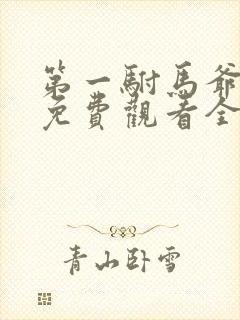 第一駙馬爺
免費觀看全
青山卧雪